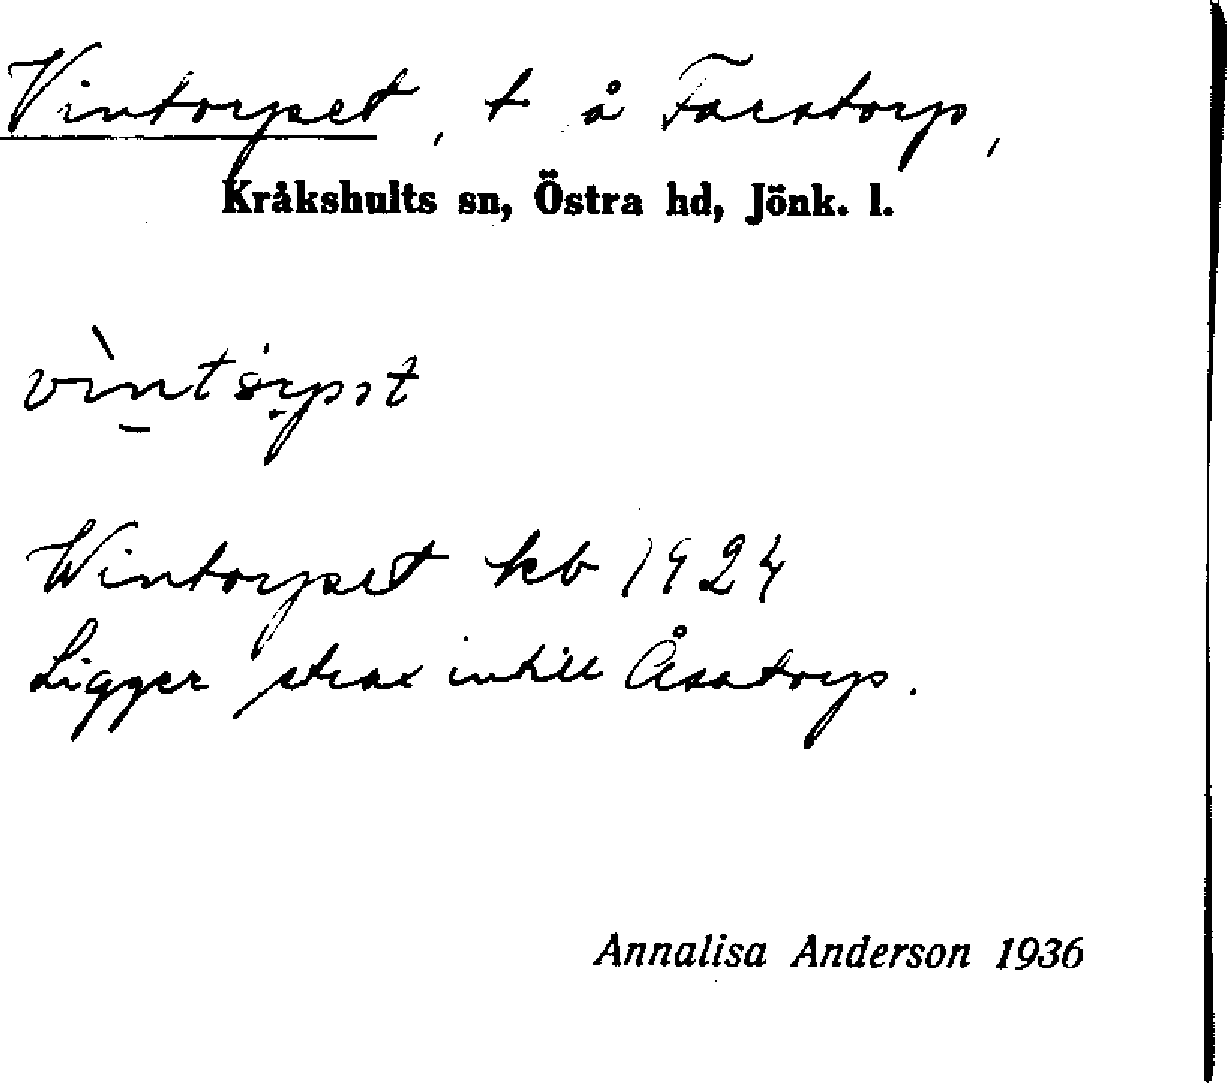 Vintorpet, t å Farstorp,
Kråkshults sn, Östra hd, Jönk. l.
Wintorpet kb 1924
Ligger strax intill Åsatorp.
Annalisa Anderson 1936